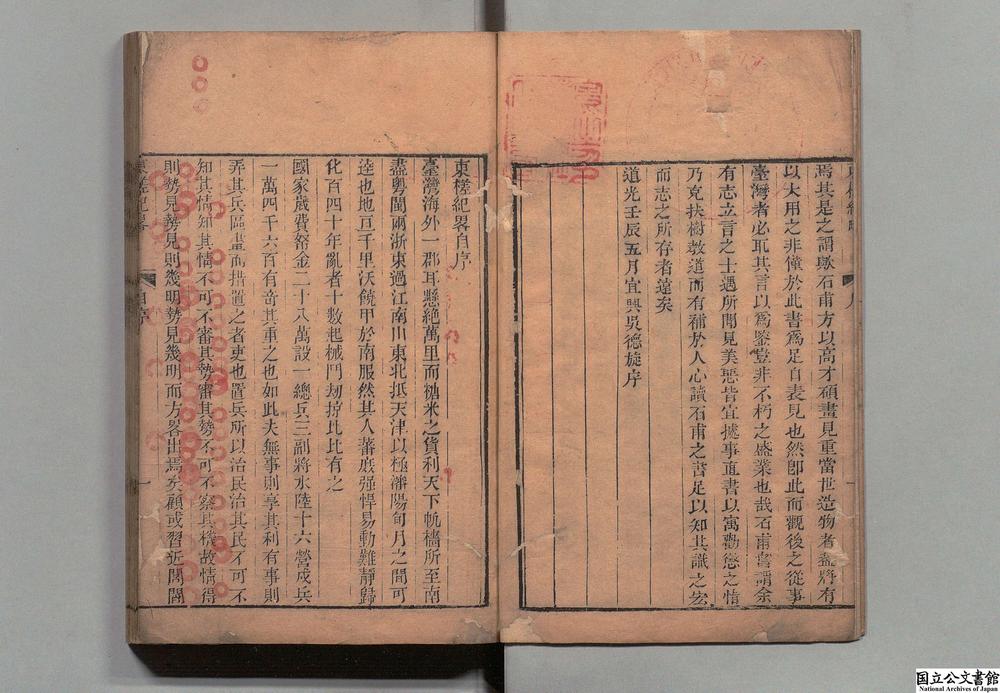 焉其是之謂歟石甫方以高才碩畫見重當世造物者蓋將有
以大用之非僅於此書爲足自表見也然卽此而觀後之從事
臺灣者必取其言以爲鑒豈非不朽之盛業也哉石甫嘗謂余
有志立言之士遇所聞見美惡皆宜據事直書以寓勸懲之情
乃克扶樹敎道而有補於人心讀石甫之書足以知其識之宏
而志之所存者遠矣
道光壬辰五月宜興吳德旋序
東槎紀畧自序
臺灣海外一郡耳懸絶萬里而糖米之貨利天下帆檣所至南
盡粤閩兩浙東過江南山東北抵天津以極瀋陽旬月之間可
逹也地亘千里沃饒甲於南服然其人蕃庶强悍易動難靜歸
化百四十年亂者十數起械鬥刼掠比比有之
國家歲費帑金二十八萬設一總兵三副將水陸十六營戍兵
一萬四千六百有奇其重之也如此夫無事則享其利有事則
弄其兵區畫而措置之者吏也置兵所以治民治其民不可不
知其情知其情不可不審其勢審其勢不可不察其機故情得
則勢見勢見則幾明勢見幾明而方畧出焉矣顧或習近闇闊
東槎紀畧
自序
一
国立公文書館
National Archives of Japan